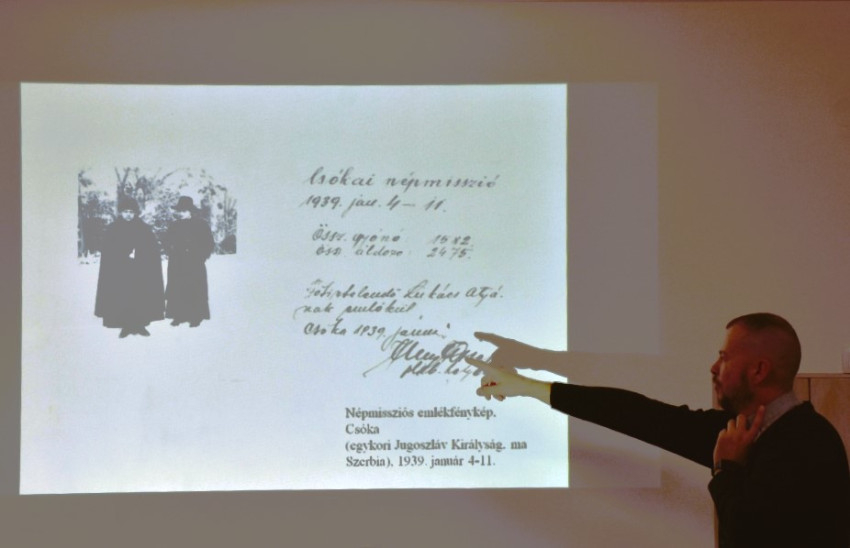 Csókai népmisszió
1939. jan. 4 – 11.
Össz. gyónó 1582
össz áldozó 2475.
Lukács Atyá-
nak emlékül
Csóka 1939. januári
Népmissziós emlékfénykép.
Csóka
(egykori Jugoszláv Királyság, ma
Szerbia), 1939. január 4-11.